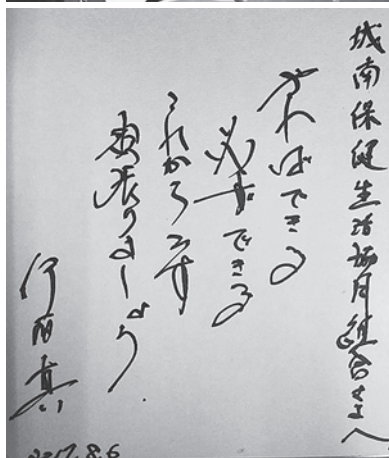 城南保健生活協同組合さまへ
やればできる
必ずできる
これからです
頑張りましょう
伊藤真
2017.8.6